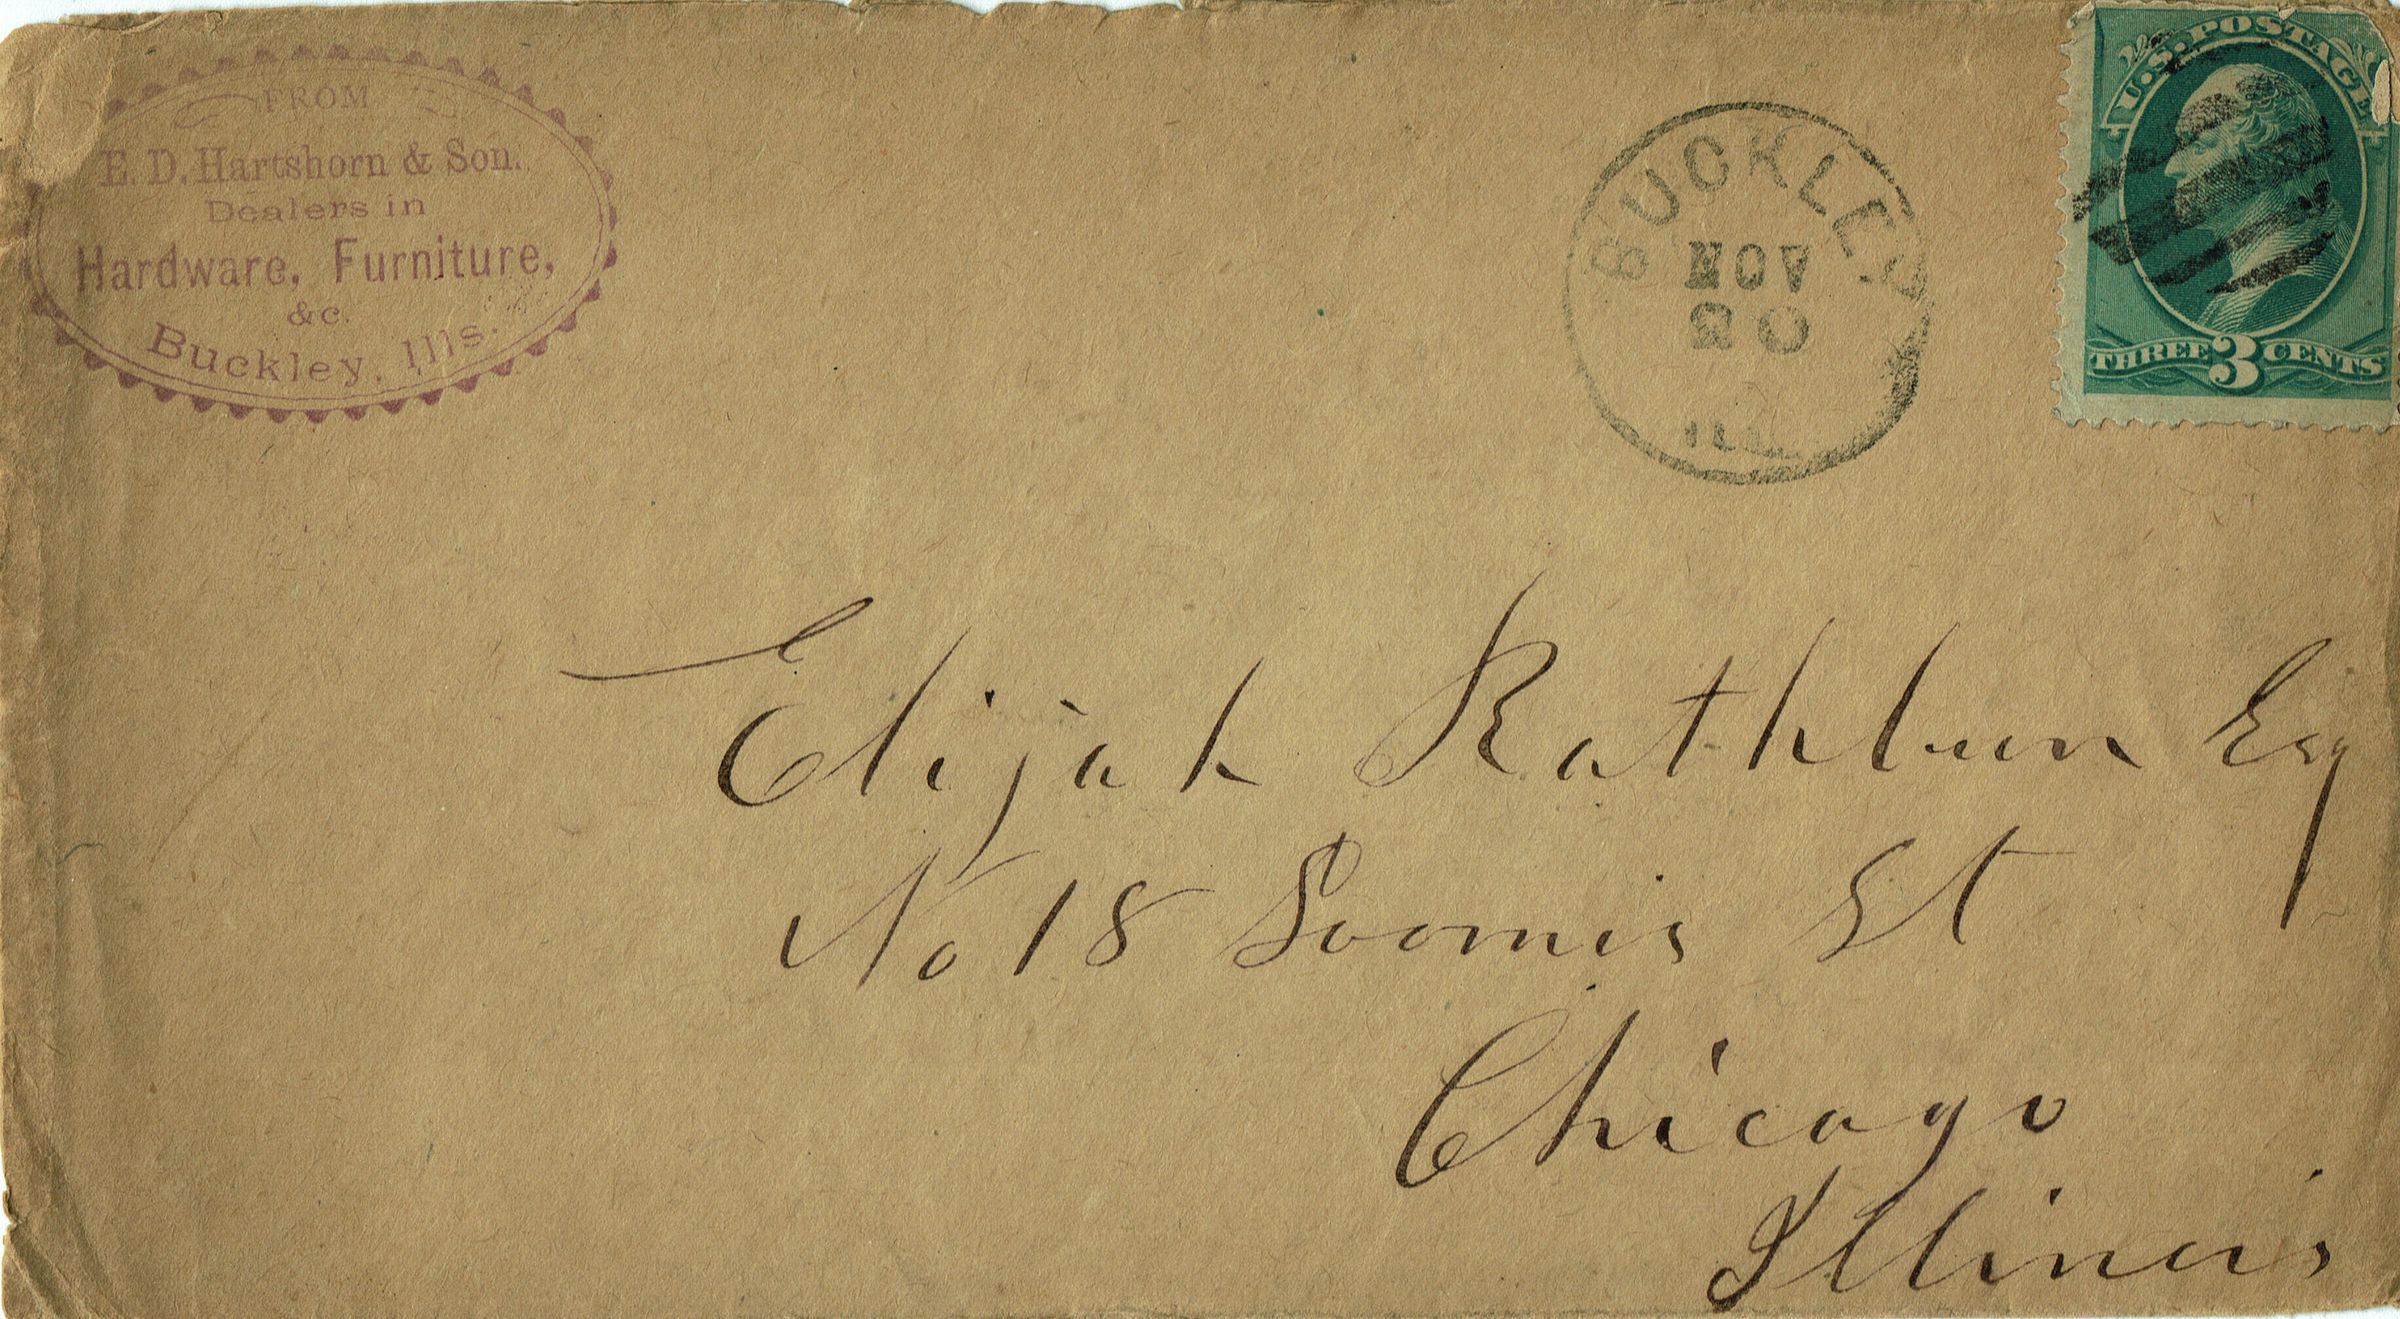 FROM
E. D. Hartshorn & Son.
Dealers in
Hardware, Furniture,
&c.
Buckley, Ills.
BUCKLEY
NOV
20
ILL.
U.S. POSTAGE
THREE 3 CENTS
Elijah Rathbun Esq
No 18 Loomis St
Chicago
Illinois